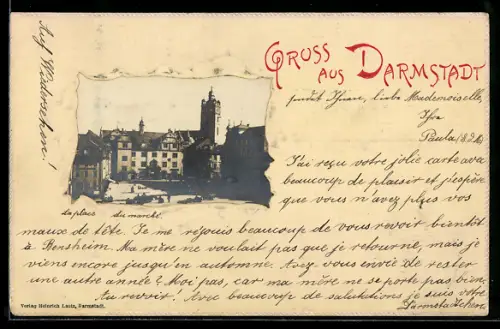 Auf Wiedersehen!
GRUSS AUS DARMSTADT
sendet Ihnen, liebe Mademoiselle,
Ihre
Paula
J'ai reçu votre jolie carte avec
beaucoup de plaisir et j'espère
que vous n'avez plus vos
La place du marché
maux de tête. Je me réjouis beaucoup de vous revoir bientôt
à Bensheim. Ma mère ne voulait pas que je retourne, mais je
viens encore jusqu'en automne. Avez vous envie de rester
une autre année? Moi pas, car ma mère ne se porte pas bien.
Au revoir! Avec beaucoup de salutations je suis votre
Darmstadtchen
Verlag Heinrich Lautz, Darmstadt.